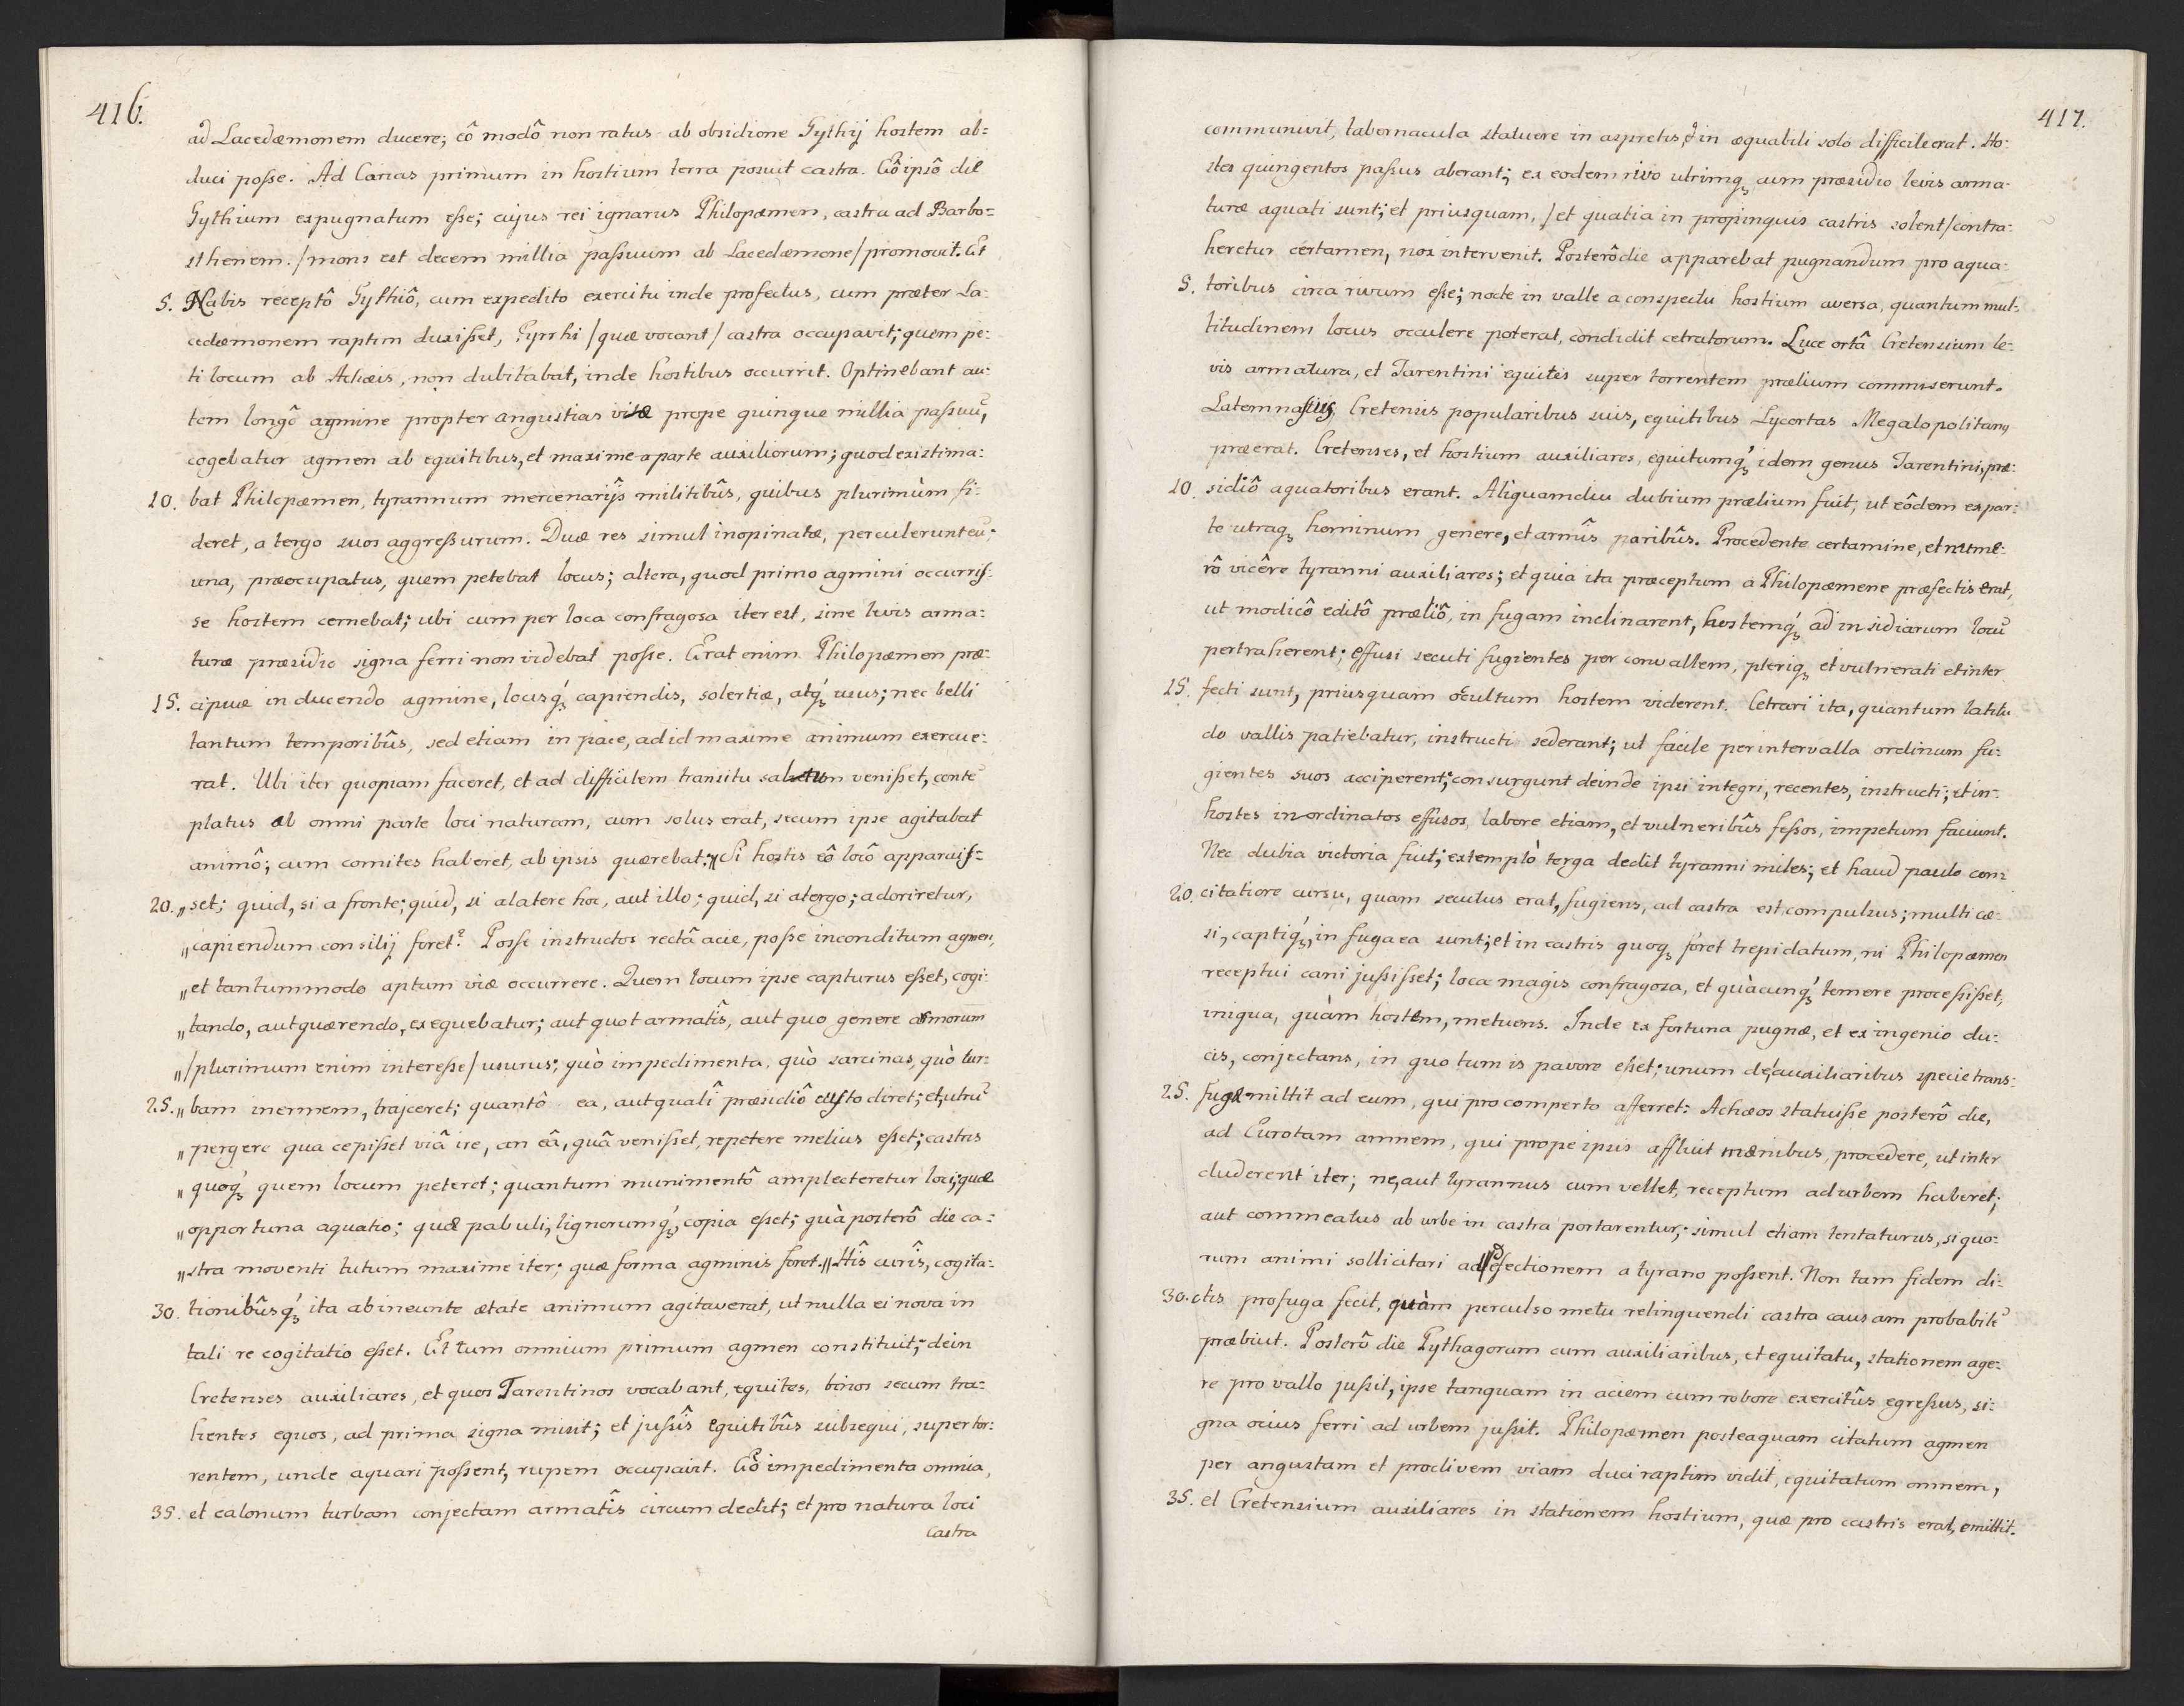 416.
ad Lacedæmonem ducere; eô modô non ratus ab obsidione Gythij hostem ab=
duci posse. Ad Carias primum in hostium terra posuit castra. Eô ipsô die
Gythium expugnatum esse; cujus rei ignarus Philopæmen, castra ad Barbo=
sthenem. /mons est decem millia passuum ab Lacedæmone/ promovit. Et
5. Nabis receptô Gythiô, cum expedito exercitu inde profectus, cum præter La=
cedæmonem raptim duxisset, Pyrrhi /quæ vocant/ castra occupavit; quem pe=
ti locum ab Achæis, non dubitabat, inde hostibus occurrit. Optinebant au=
tem longô agmine propter angustias viæ prope quinque millia passuũ,
cogebatur agmen ab equitibus, et maxime a parte auxiliorum; quod existima=
10. bat Philopæmen, tyrannum mercenarijs militibûs, quibus plurimùm fi=
deret, a tergo suos aggressurum. Duæ res simul inopinatæ, perculerunt eũ;
una, præocupatus, quem petebat locus; altera, quod primo agmini occurris=
se hostem cernebat; ubi cum per loca confragosa iter est, sine levis arma=
turæ præsidio signa ferri non videbat posse. Erat enim Philopæmen præ=
15. cipuæ in ducendo agmine, locisq́ꝫ capiendis, solertiæ, atq́ꝫ usus; nec belli
tantum temporibûs, sed etiam in pace, ad id maxime animum exercue=
rat. Ubi iter quopiam faceret, et ad difficilem transitu saltum venisset, contẽ
platus ab omni parte loci naturam, cum solus erat, secum ipse agitabat
animô; cum comites haberet, ab ipsis quærebat: „Si hostis eô locô apparuis=
20. „set; quid, si a fronte; quid, si a latere hoc, aut illo; quid, si a tergo; adoriretur,
„capiendum consilij foret? Posse instructos rectâ acie, posse inconditum agmen,
„et tantummodo aptum viæ occurrere. Quem locum ipse capturus esset, cogi=
„tando, aut quærendo, exequebatur; aut quot armatîs, aut quo genere armorum
„/plurimum enim interesse/ usurus; quò impedimenta, quò sarcinas, quò tur=
25. „bam inermem, trajceret; quantô ea, aut qualî præsidiô custodiret; et, utrũ
„pergere qua cepisset viâ ire, an eâ, quâ venisset, repetere melius esset; castris
„quoq́ꝫ quem locum peteret; quantum munimentô amplecteretur loci; quæ
„opportuna aquatio; quæ pabuli, lignorumq́ꝫ copia esset; quà posterô die ca=
„stra moventi tutum maxime iter; quæ forma agminis foret.„ Hîs curîs, cogita=
30. tionibûsq́ꝫ ita ab ineunte ætate animum agitaverat, ut nulla ei nova in
tali re cogitatio esset. Et tum omnium primum agmen constituit; dein
Cretenses auxiliares, et quos Tarentinos vocabant, equites, binos secum tra=
hentes equos, ad prima signa misit; et jussîs equitibûs subsequi, super tor=
rentem, unde aquari possent, rupem occupavit. Eô impedimenta omnia,
35. et calonum turbam conjectam armatîs circumdedit; et pro natura loci
Castra
417.
communivit, tabernacula statuere in aspretis, & in æquabili solo difficile erat. Ho=
stes quingentos passus aberant; ex eodem rivo utrimqꝫ cum præsidio levis arma=
turæ aquati sunt; et priusquam, /et qualia in propinquis castris solent/ contra=
heretur certamen, nox intervenit. Posterôdie apparebat pugnandum pro aqua=
5. toribus circa rivum esse; nocte in valle a conspectu hostium aversa, quantum mul=
titudinem locus occulere poterat, condidit cetratorum. Luce ortâ Cretensium le=
vis armatura, et Tarentini equites super torrentem prælium commiserunt.
Latemnastus Cretensis popularibus suis, equitibus Lycortas Megalopolitanꝰ
præerat. Cretenses, et hostium auxiliares, equitumq́ꝫ idem genus Tarentini, præ=
10. sidiô aquatoribus erant. Aliquamdiu dubium prælium fuit, ut eôdem ex par=
te utraqꝫ hominum genere, et armîs paribûs. Procedente certamine, et nume=
rô vicêre tyranni auxiliares; et quia ita præceptum a Philopæmene præfectis erat,
ut modicô editô præliô, in fugam inclinarent, hostemq́ꝫ ad insidiarum locũ
pertraherent; effusi secuti fugientes per convallem, pleriqꝫ et vulnerati et inter
15. fecti sunt, priusquam occultum hostem viderent. Cetrari ita, quantum latitu
do vallis patiebatur, instructi sederant; ut facile per intervalla ordinum fu=
gientes suos acciperent; consurgunt deinde ipsi integri, recentes, instructi; et in=
hostes inordinatos effusos, labore etiam, et vulneribûs fessos, impetum faciunt.
Nec dubia victoria fuit; extemplò terga dedit tyranni miles; et haud paulo con=
20. citatiore cursu, quam secutus erat, fugiens, ad castra est compulsus; multi cæ=
si, captiq́ꝫ, in fuga ea sunt; et in castris quoqꝫ foret trepidatum, ni Philopæmen
receptui cani jussisset; loca magis confragosa, et quàcunq́ꝫ temere processisset,
iniqua, quàm hostem, metuens. Inde ex fortuna pugnæ, et ex ingenio du=
cis, conjectans, in quo tum is pavore esset; unum de, auxiliaribus specie trans=
25. fugæ mittit ad eum, qui pro comperto afferret: Achæos statuisse posterô die,
ad Eurotam amnem, qui prope ipsis affluit mænibus, procedere, ut inter
cluderent iter; ne, aut tyrannus cum vellet, receptum ad urbem haberet;
aut commeatus ab urbe in castra portarentur; simul etiam tentaturus, si quo=
rum animi sollicitari ad defectionem a tyrano possent. Non tam fidem di=
30. ctis profuga fecit, quàm perculso metu relinquendi castra causam probabilẽ
præbiut. Posterô die Pythagoram cum auxiliaribus, et equitatu, stationem age=
re pro vallo jussit, ipse tanquam in aciem cum robore exercitûs egressus, si=
gna ocius ferri ad urbem jussit. Philopæmen posteaquam citatum agmen
per angustam et proclivem viam duci raptim vidit, equitatum omnem,
35. et Cretensium auxiliares in stationem hostium, quæ pro castris erat, emittit.